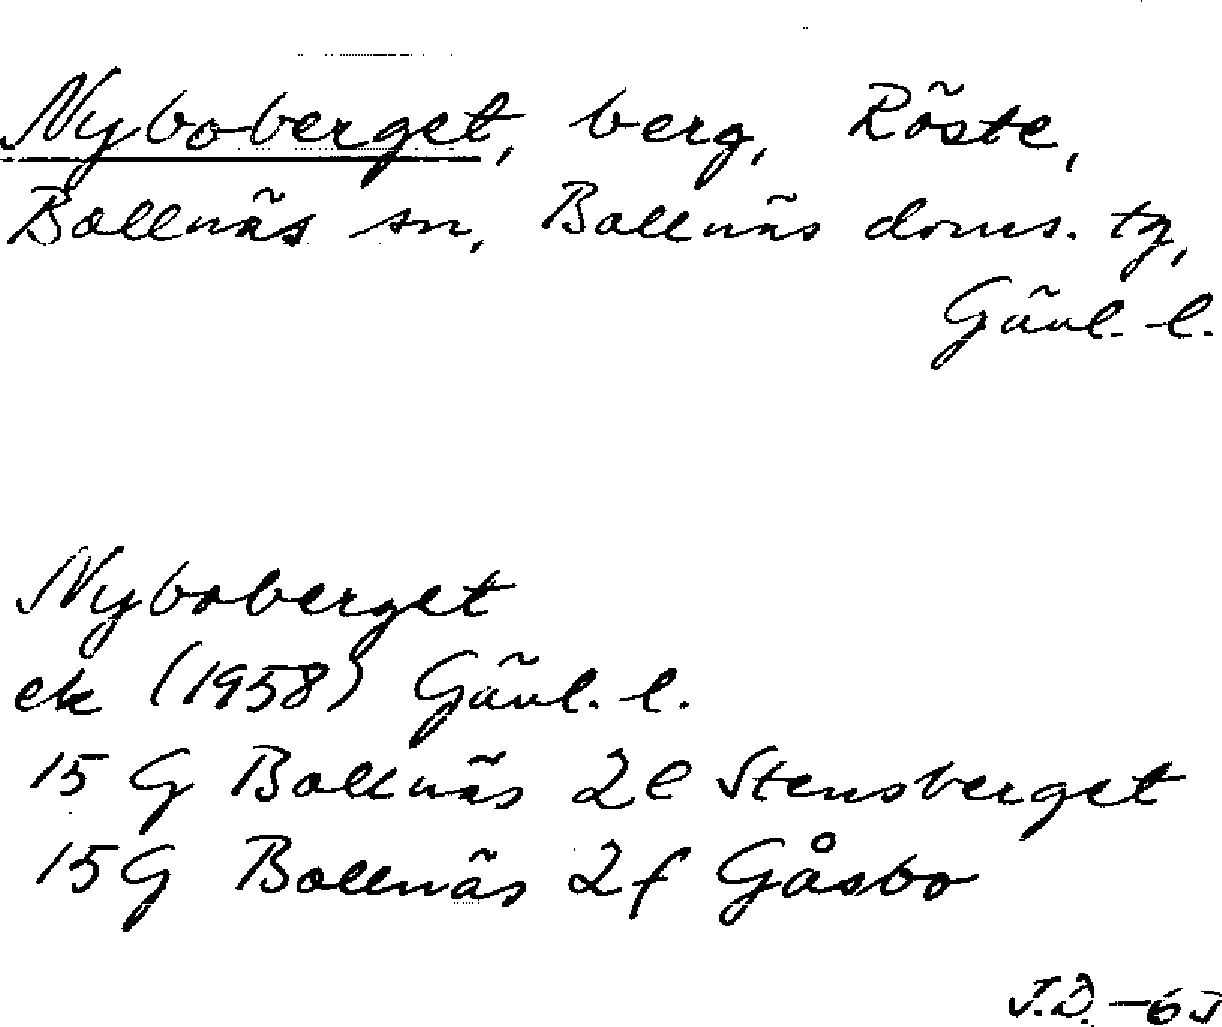 Nyboberget, berg, Röste,
Bollnäs sn, Bollnäs doms. tg,
Gävl. l.
Nyboberget
ek (1958) Gävl. l.
15 G Bollnäs 2e Stensberget
15G Bollnäs 2f Gåsbo
J.D.